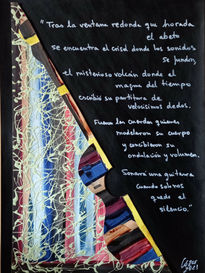 "Tras la ventana redonda que horada
el abeto
se encuentra el crisol donde los sonidos
se funden,
el misterioso volcán donde el
magma del tiempo
escribió su partitura de
velocísimos dedos.
Fueron las cuerdas quienes
modelaron su cuerpo
y concibieron su
ondulación y volumen.
Sonará una guitarra
cuando sólo nos
quede el
silencio."